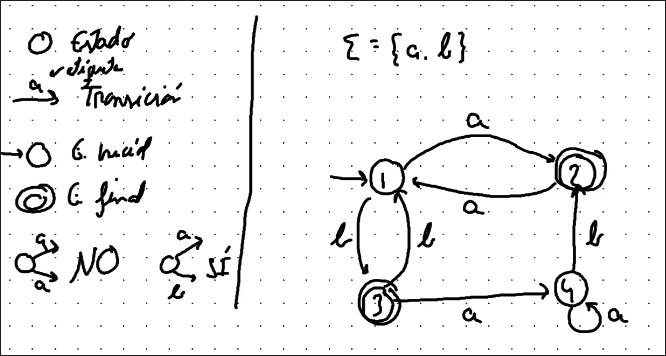 Estado
etiqueta
a
Transición
E. inicial
E. final
a
a
NO
a
b
SÍ
Σ = {a, b}
a
1
2
a
b
b
b
3
a
4
a